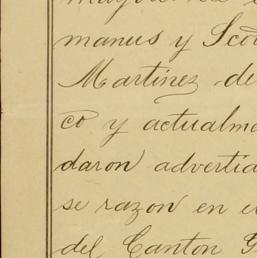 manus y
Martinez de
co y actualm
daron adverti
se razon en e
del Canton G